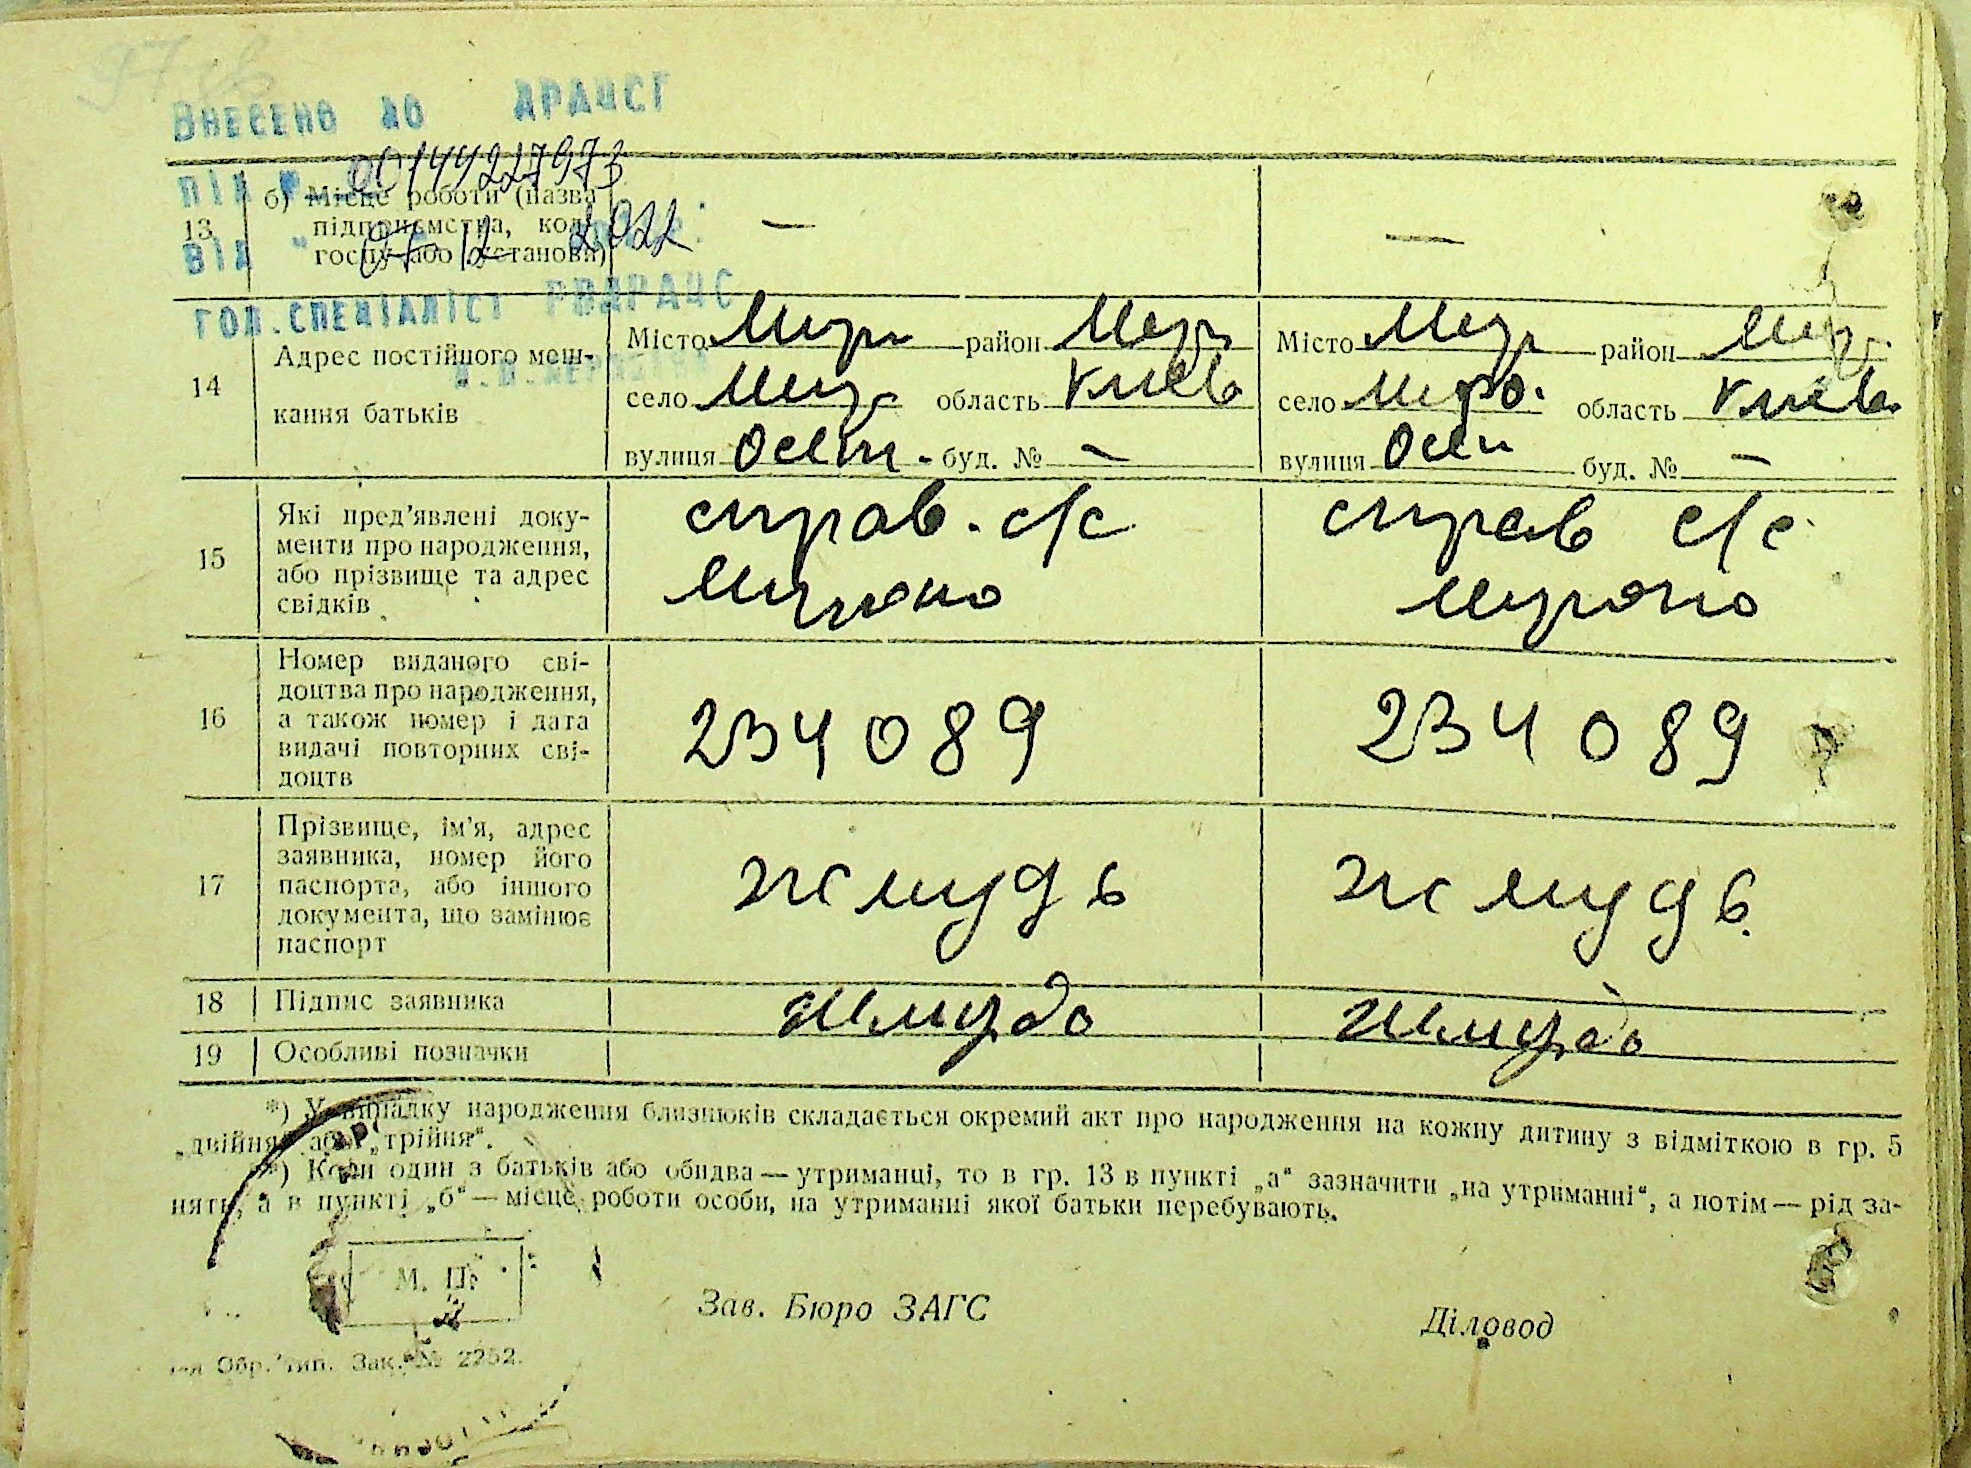 Внесено до ДРАЦСГ
під № 00144227973
від " 07 12 2022
гол.спеціаліст РВДРАЦС
13 б) Місце роботи (назва підприємства, колгоспу або установи) — —
14 Адрес постійного мешкання батьків
Місто Мир район Мир Місто Мир район Мир.
село Мир область Київ село Миро. область Київ
вулиця Осет. буд. № — вулиця Осет буд. № —
15 Які пред'явлені документи про народження, або прізвище та адрес свідків
справ. с/с справ с/с
Мироно Мироно
16 Номер виданого свідоцтва про народження, а також номер і дата видачі повторних свідоцтв
234089 234089
17 Прізвище, ім'я, адрес заявника, номер його паспорта, або іншого документа, що замінює паспорт
Жмудь Жмудь
18 Підпис заявника Жмудь Жмудь
19 Особливі позначки
*) У випадку народження близнюків складається окремий акт про народження на кожну дитину з відміткою в гр. 5
„двійня" або „трійня".
**) Коли один з батьків або обидва — утриманці, то в гр. 13 в пункті „а" зазначити „на утриманні", а потім — рід за-
нять, а в пункті „б" — місце роботи особи, на утриманні якої батьки перебувають.
М. П.
Зав. Бюро ЗАГС Діловод
Обр. тип. Зак. № 2252.